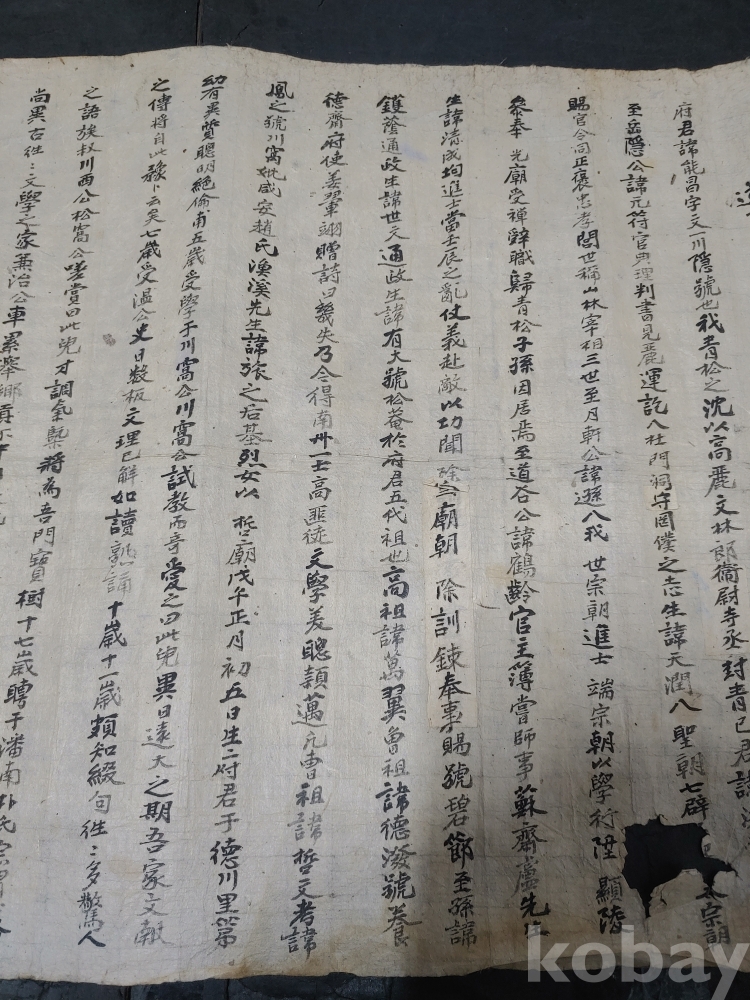 府君諱能昌字文一川隱號也我青松之沈以高麗文林郎衛尉寺丞封青己君諱
至岳隱公諱元符官典理判書見麗運訖入杜門洞守罔僕之志生諱天潤入聖朝七辟 太宗朝
賜官令同正褒忠孝閭世稱山林宰相三世至月軒公諱遜入我 世宗朝進士 端宗朝以學行陞 顯陵
參奉 光廟受禪辭職歸青松子孫因居焉至道谷公諱鶴齡官主簿嘗師事蘇齋盧先生
生諱清成均進士當壬辰之亂仗義赴敵以功聞除 宣廟朝 除訓鍊奉事賜號碧節至孫諱
鑊蔭通政生諱世文通政生諱有大號松菴於府君五代祖也高祖諱萬翼曾祖諱德潑號養
德齋府使姜翬翊贈詩曰幾失乃今得南州一士高匪徒文學羨聰穎邁凡曹祖諱哲文考諱
鳳之號川窩妣咸安趙氏漁溪先生諱旅之后基烈女以 哲廟戊午正月初五日生二府君于德川里第
幼有異質聰明絕倫甫五歲受學于川窩公川窩公試教而奇愛之曰此兒異日遠大之期吾家文獻
之傳將自此發卜云矣七歲受溫公史日數板文理已解如讀熟誦 十歲十一歲頗知綴句徃々多驚人
之語族叔川西公松窩公嗟賞曰此兒才調氣槩將為吾門寶樹十七歲聘于潘南朴氏
尚異古徃々文學之家兼治公車累舉鄉